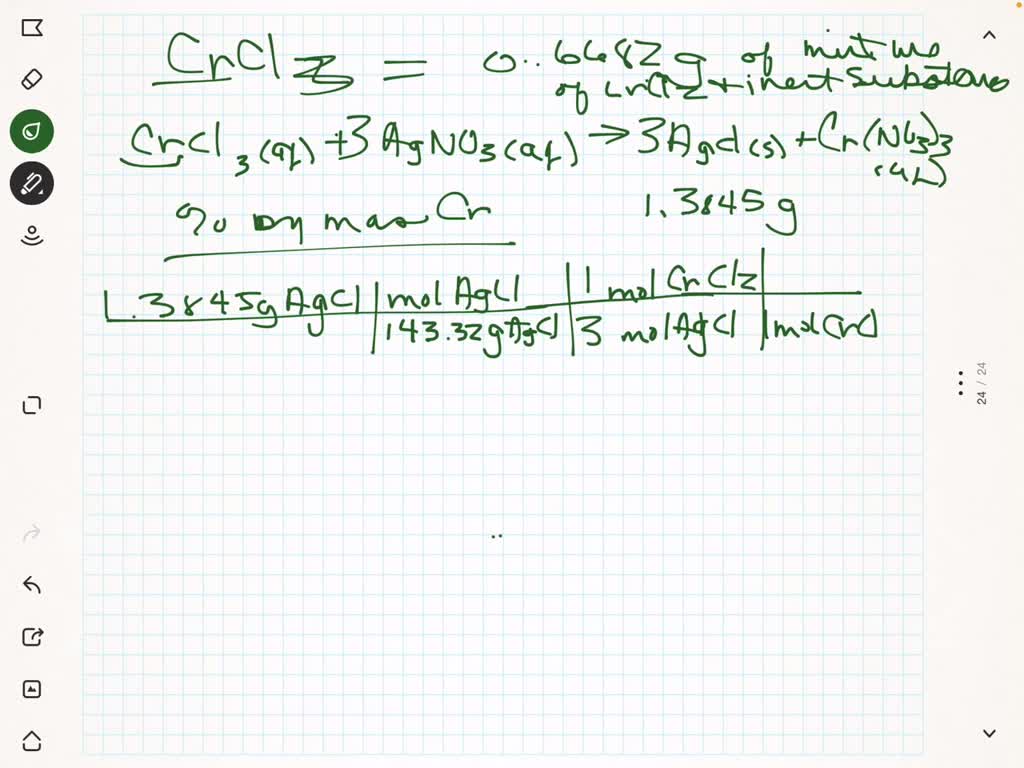 CrCl3 = 0..6682 g of mixture
of CrCl3 + inert Substance
CrCl3(aq) + 3 AgNO3(aq) → 3 AgCl(s) + Cr(NO3)3
(aq)
% by mass Cr
1.3845 g
1.3845g AgCl | mol AgCl | 1 mol CrCl3 |
143.32g AgCl | 3 mol AgCl | 1 mol CrCl
24 / 24